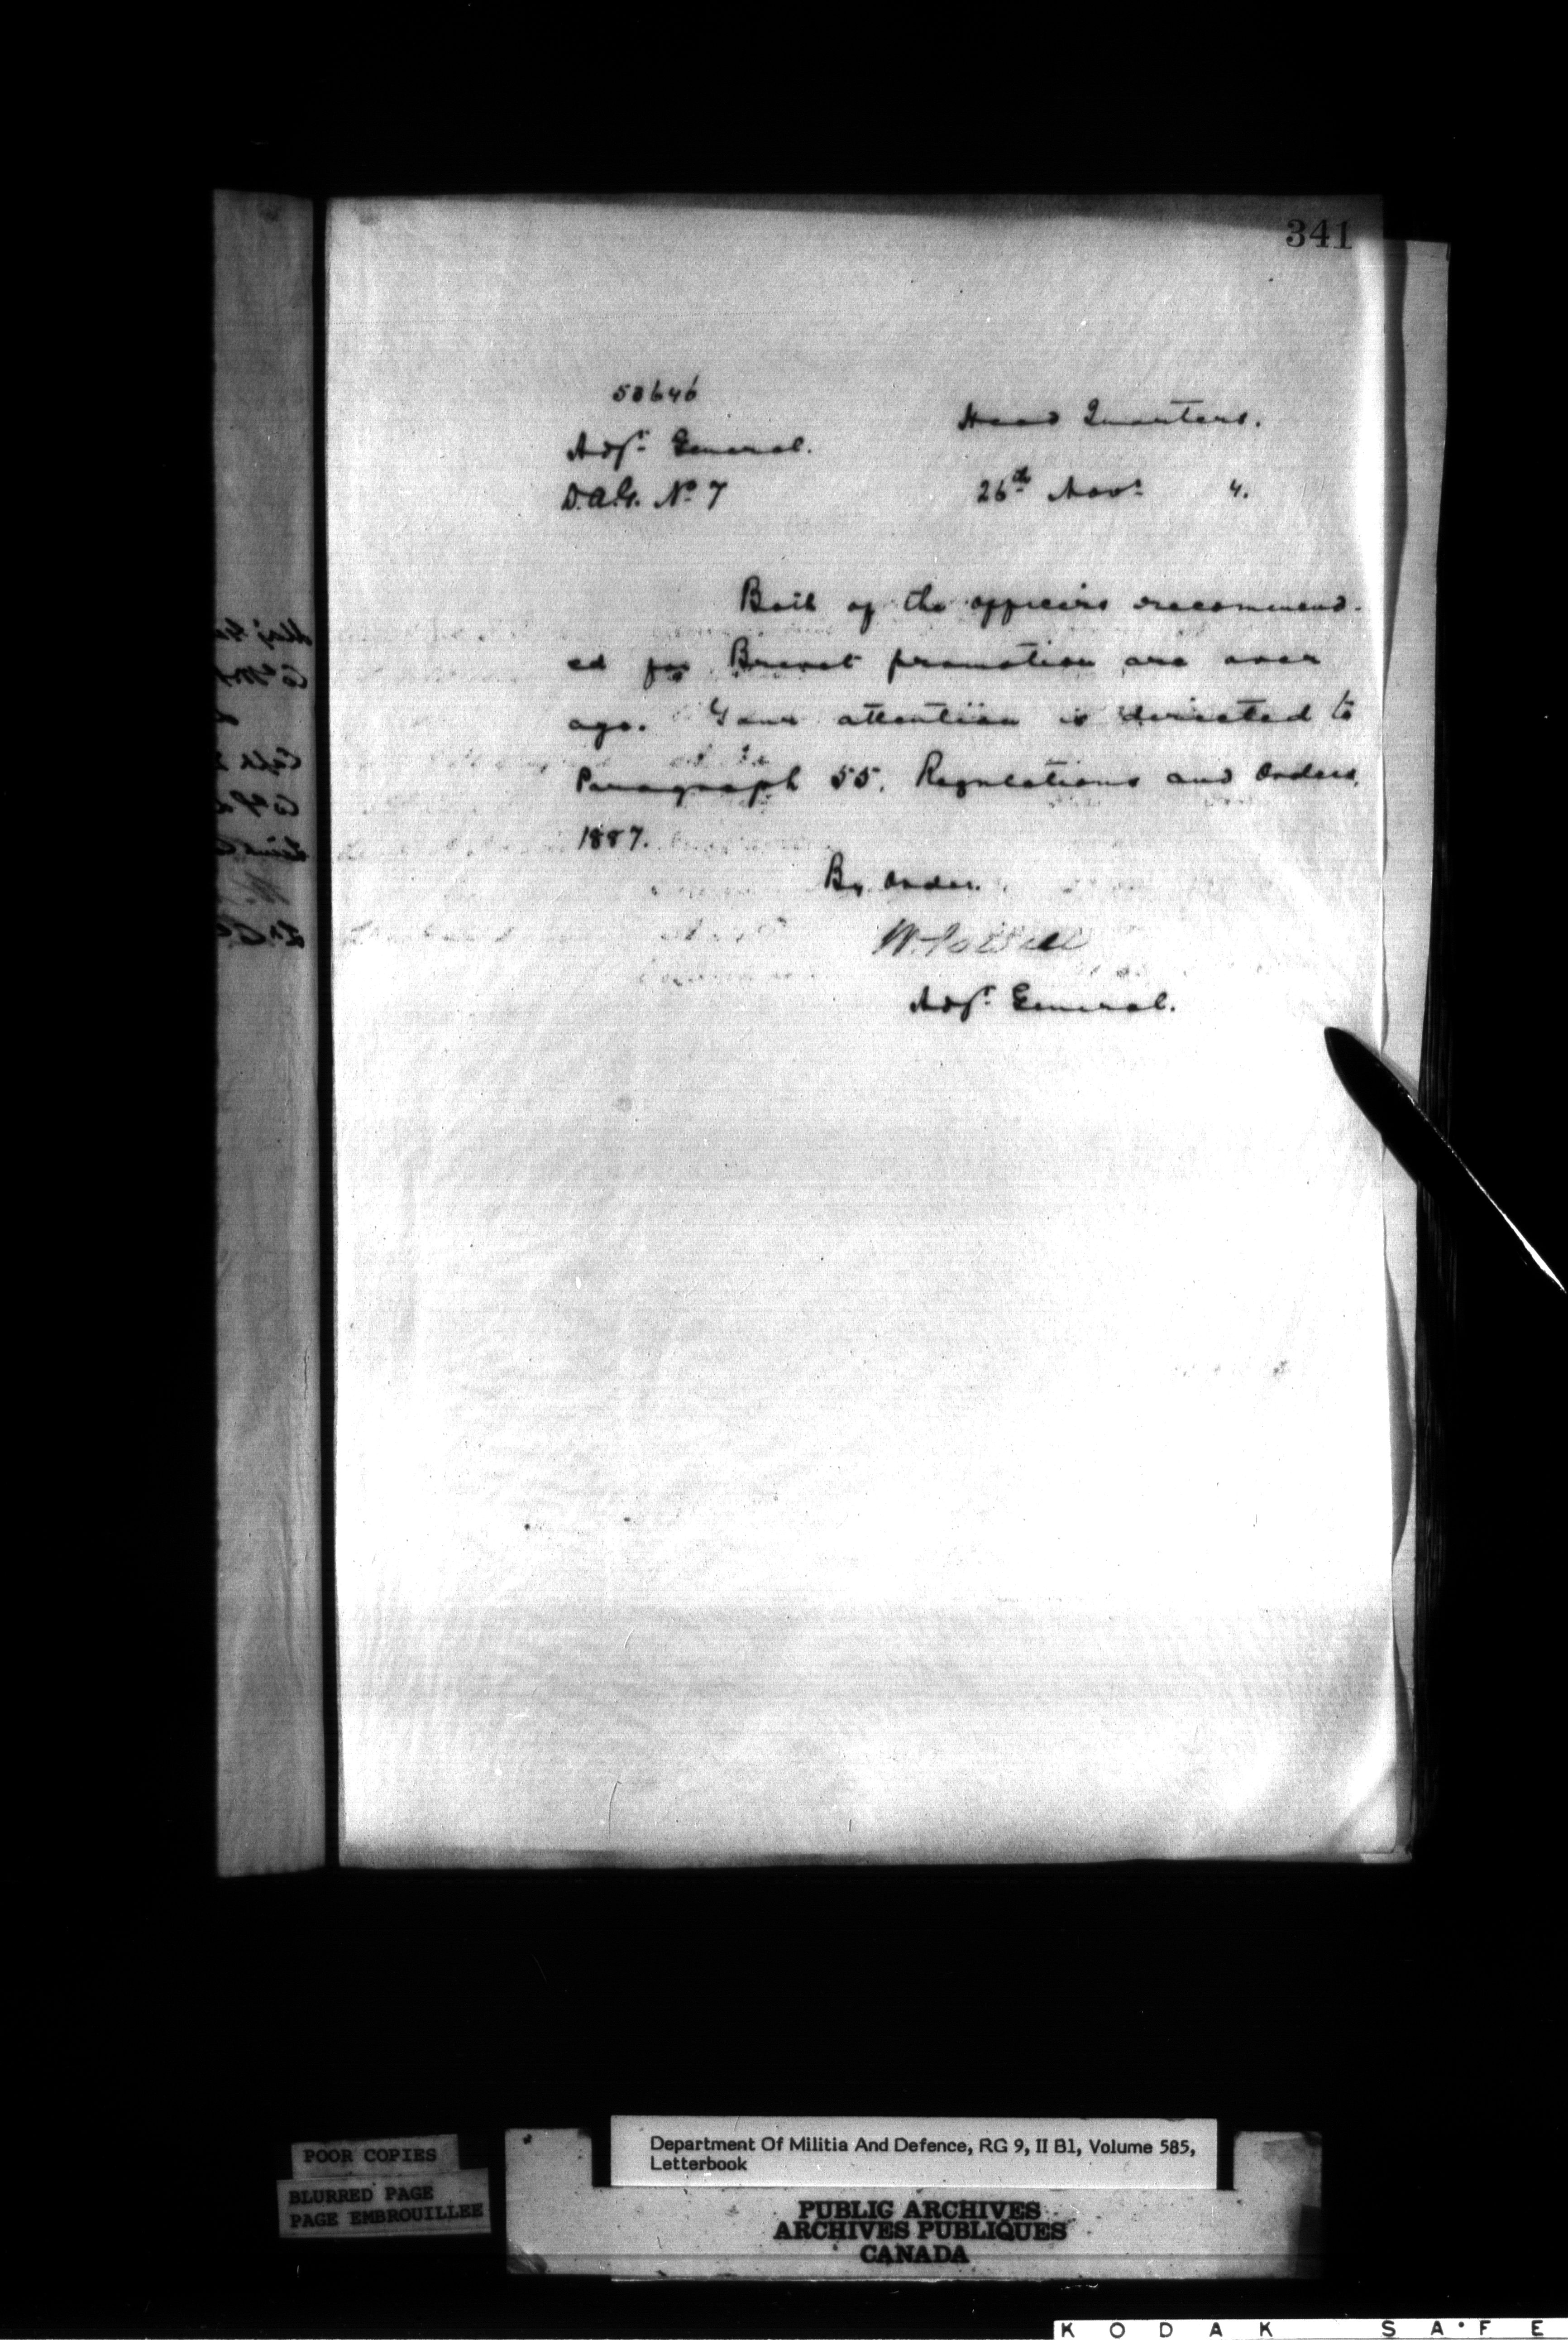 341
53646
Head Quarters.
Adjt General.
D.A.G. No 7
26th Novr 4.
Both of the officers recommend-
ed for Brevet promotion are over
age. Your attention is directed to
Paragraph 55, Regulations and Orders,
1887.
By Order.
W. Powell
Adjt General.
POOR COPIES
BLURRED PAGE
PAGE EMBROUILLEE
Department Of Militia And Defence, RG 9, II B1, Volume 585,
Letterbook
PUBLIC ARCHIVES
ARCHIVES PUBLIQUES
CANADA
KODAK SAFE